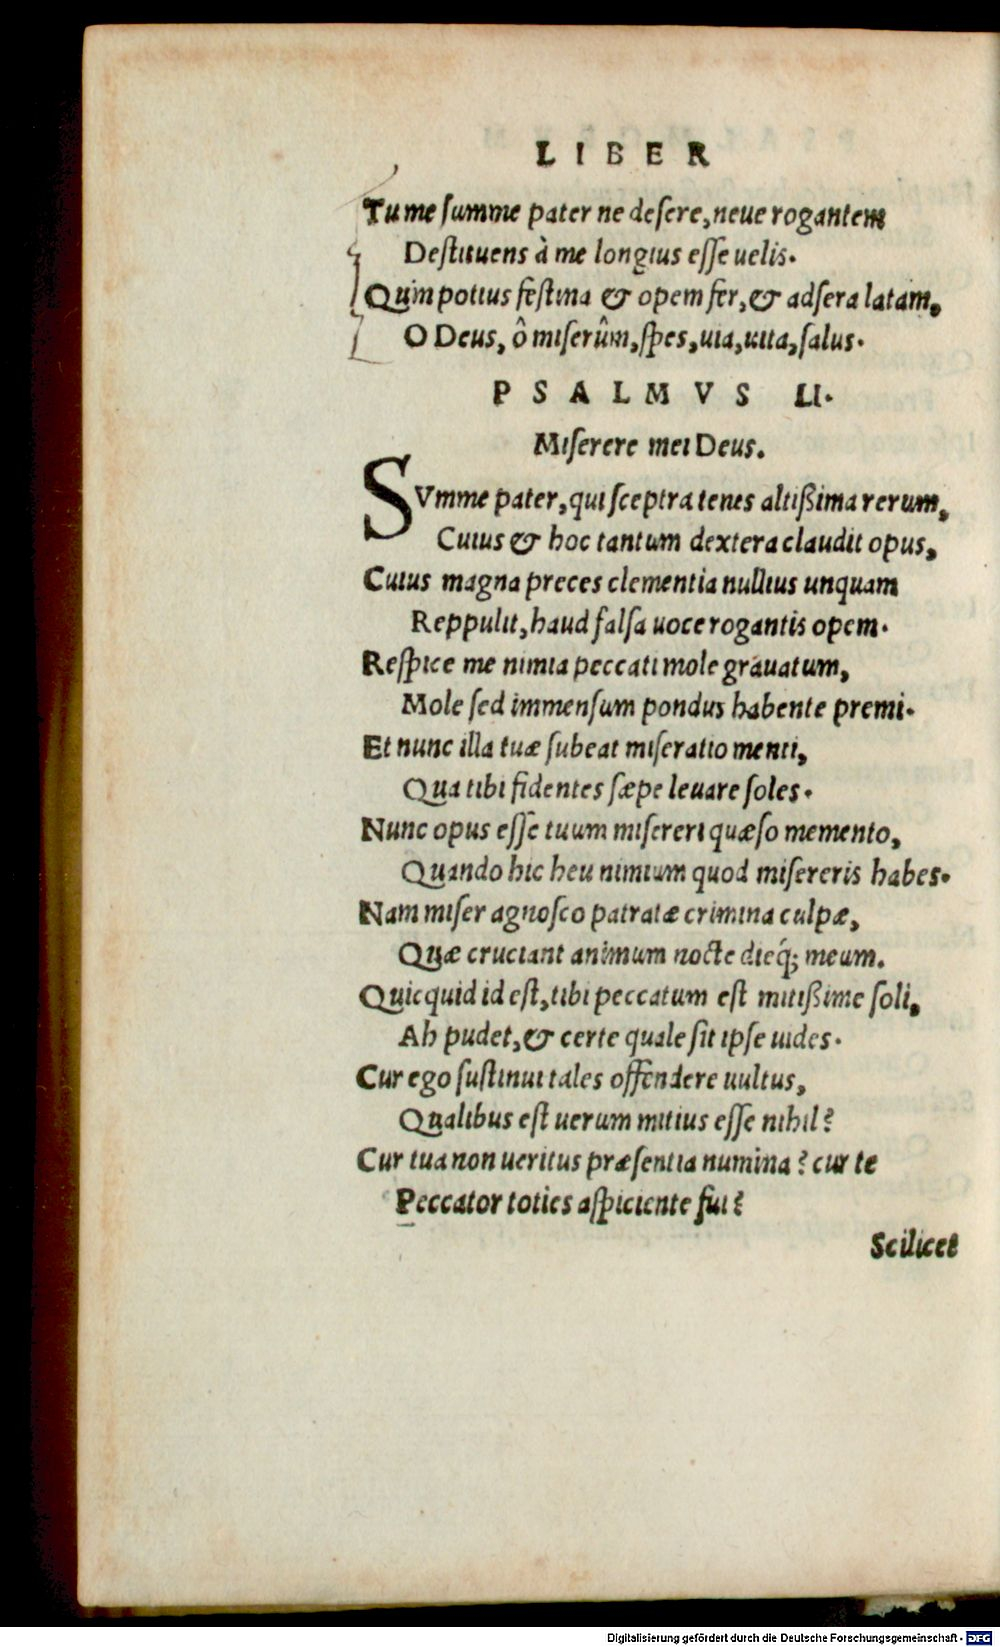 LIBER
Tu me summe pater ne desere, neue rogantem
Destituens à me longius esse uelis.
Quin potius festina & opem fer, & adsera latam,
O Deus, ô miserûm, spes, uia, uita, salus.
PSALMVS LI.
Miserere mei Deus.
SVmme pater, qui sceptra tenes altißima rerum,
Cuius & hoc tantum dextera claudit opus,
Cuius magna preces clementia nullius unquam
Reppulit, haud falsa uoce rogantis opem.
Respice me nimia peccati mole grauatum,
Mole sed immensum pondus habente premi.
Et nunc illa tuæ subeat miseratio menti,
Qua tibi fidentes sæpe leuare soles.
Nunc opus esse tuum misereri quæso memento,
Quando hic heu nimium quod misereris habes.
Nam miser agnosco patratæ crimina culpæ,
Quæ cruciant animum nocte dieq́; meum.
Quicquid id est, tibi peccatum est mitißime soli,
Ah pudet, & certe quale sit ipse uides.
Cur ego sustinui tales offendere uultus,
Qualibus est uerum mitius esse nihil?
Cur tua non ueritus præsentia numina? cur te
Peccator toties aspiciente fui?
Scilicet
Digitalisierung gefördert durch die Deutsche Forschungsgemeinschaft - DFG